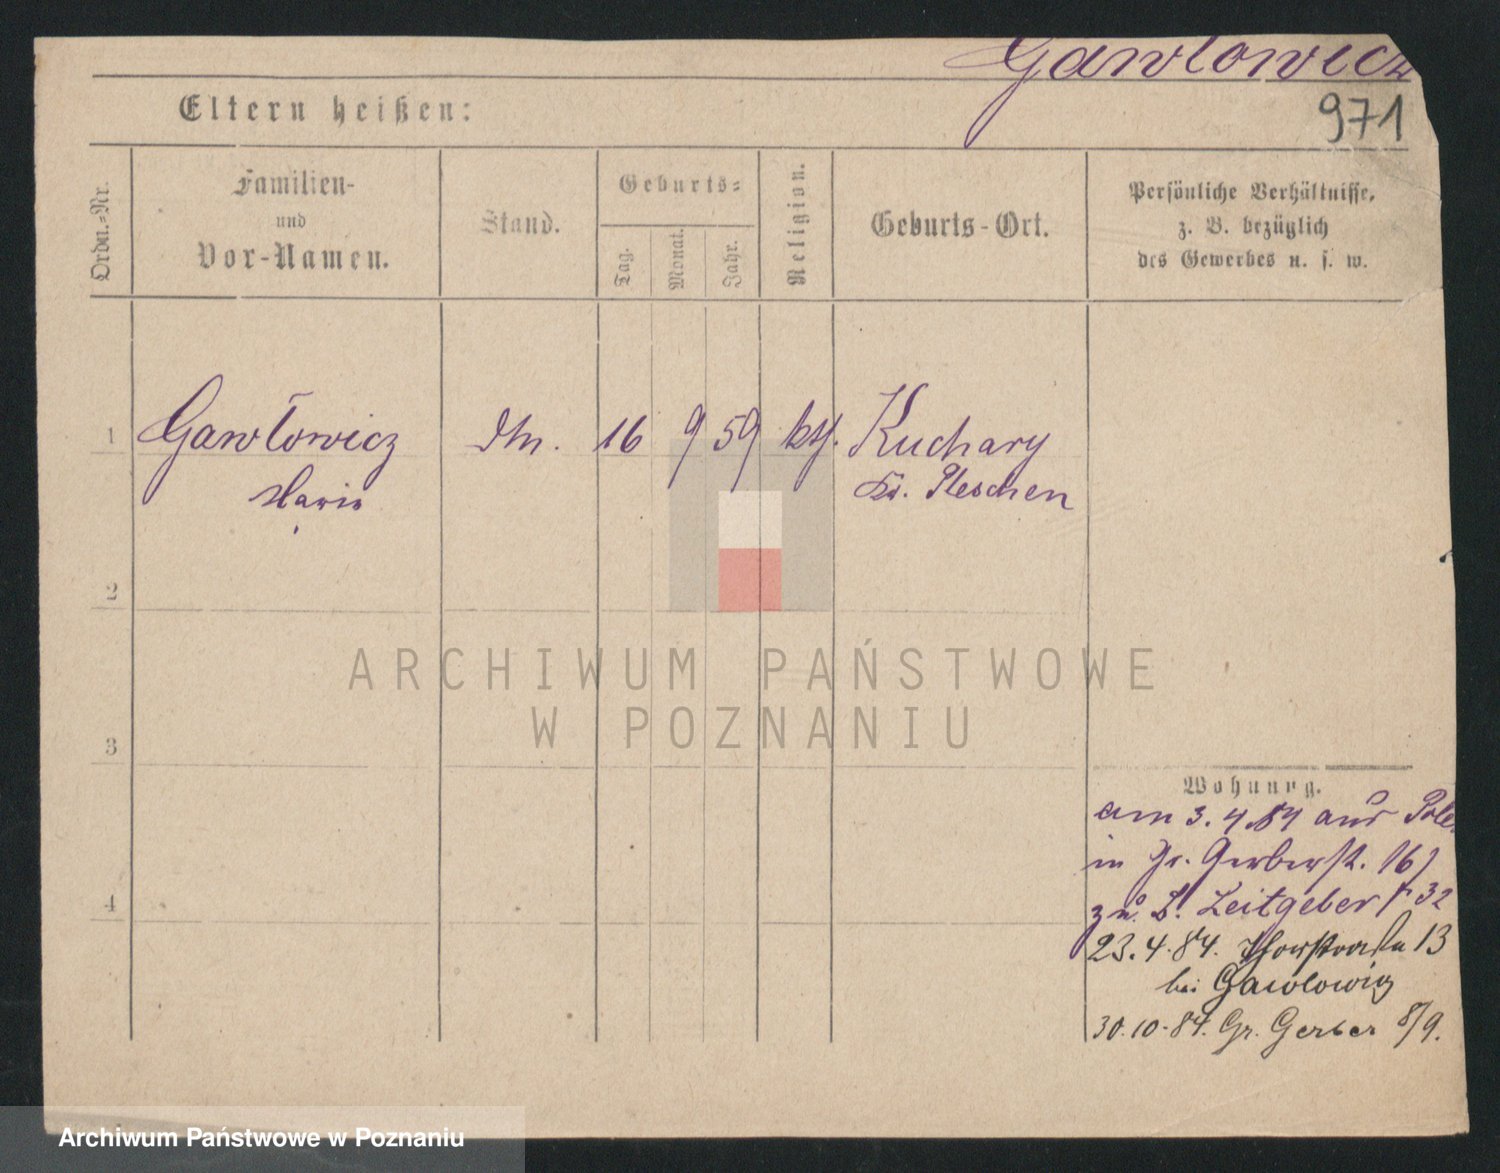 Gawłowicz
Eltern heißen:
971
Ordn.-Nr.
Familien-
und
Vor-Namen.
Stand.
Geburts-
Tag.
Monat.
Jahr.
Religion.
Geburts-Ort.
Persönliche Verhältnisse,
z. B. bezüglich
des Gewerbes u. s. w.
1
Gawłowicz
16 9 59 kth. Kuchary
Kr. Pleschen
2
ARCHIWUM PAŃSTWOWE
W POZNANIU
3
Wohnung.
am 3.4.84 aus
in Gr. Gerberst. 16
zu Leitgeber 32
4
23.4.84. 13
bei Gawlowicz
30.10.84. Gr. Gerber 8/9.
Archiwum Państwowe w Poznaniu